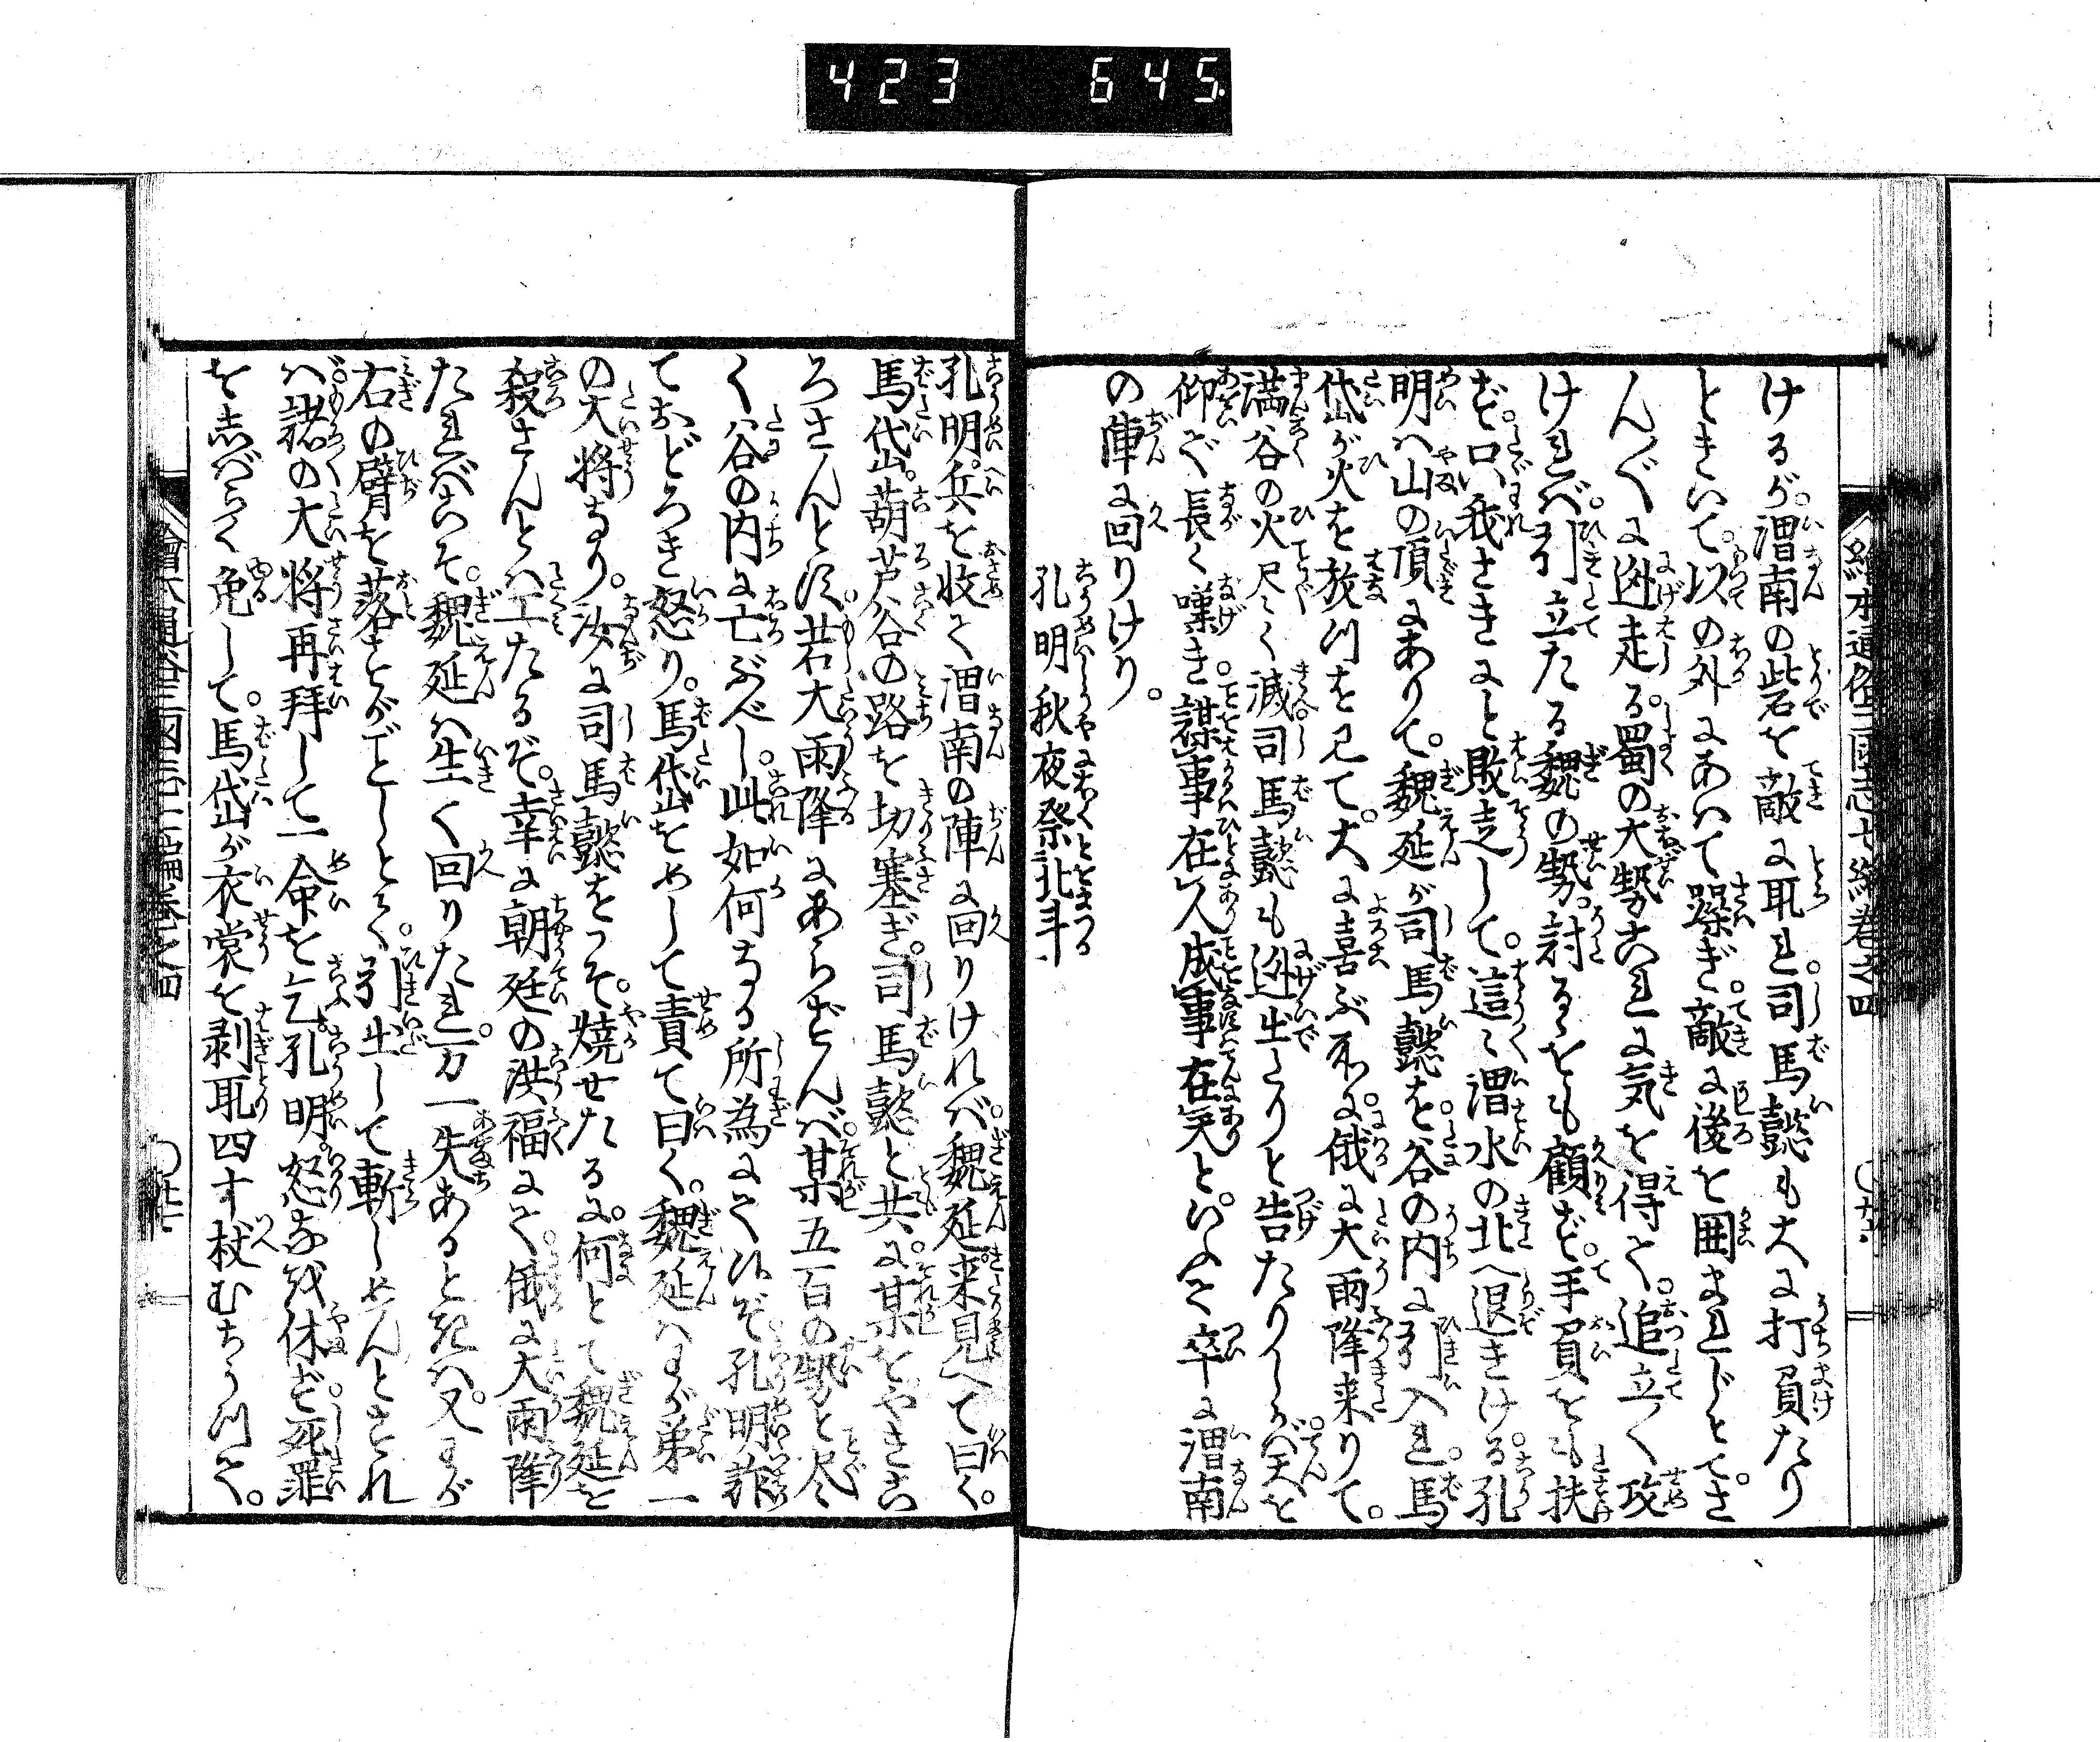 423 645.
絵本通俗三国志七編巻之四
けるが。渭南の砦を敵に取れ。司馬懿も大に打負たり
ときいて。以の外にあはて躁ぎ。敵に後を囲まれじとて。さ
んぐに迯走る。蜀の大勢これに気を得て。追立く攻
けれべ。引立たる魏の勢。討るゝをも顧ず。手負をも扶
ず。只我さきにと敗走して。這々渭水の北へ退きける。孔
明ハ山の頂にありて。魏延が司馬懿を。谷の内に引入れ。馬
岱が火を放つを見て。大に喜ぶ所に。俄に大雨降来りて。
満谷の火尽く滅。司馬懿も迯出たりと告たりしかバ。天を
仰ぎ長く嘆き。謀事在人成事在天と。いふて卒に渭南
の陣に回りけり。
孔明秋夜祭北斗
孔明。兵を收て渭南の陣に回りけれバ。魏延来見へて曰く。
馬岱。葫芦谷の路を切塞ぎ。司馬懿と共に。某をやきこ
ろさんとす。若大雨降にあらずんバ。某五百の勢と尽
く谷の内に亡ぶべし。此如何なる所為にて候ぞ。孔明詐
ておどろき怒り。馬岱をめして責て曰く。魏延ハわが第一
の大将なり。汝に司馬懿をこそ。焼せたるに。何とて魏延を
殺さんとハ工たるぞ。幸に朝廷の洪福にて。俄に大雨降
たれべこそ。魏延ハ生て回りたれ。万一失あるときハ。又わが
右の臂を落すがごとしとて。引出して斬しめんとすれ
バ。諸の大将再拝して一命を乞。孔明。怒なを休ず。死罪
を志ばらく免して。馬岱が衣裳を剥取四十杖むちうつて。
繪本通俗三国志七編巻之四